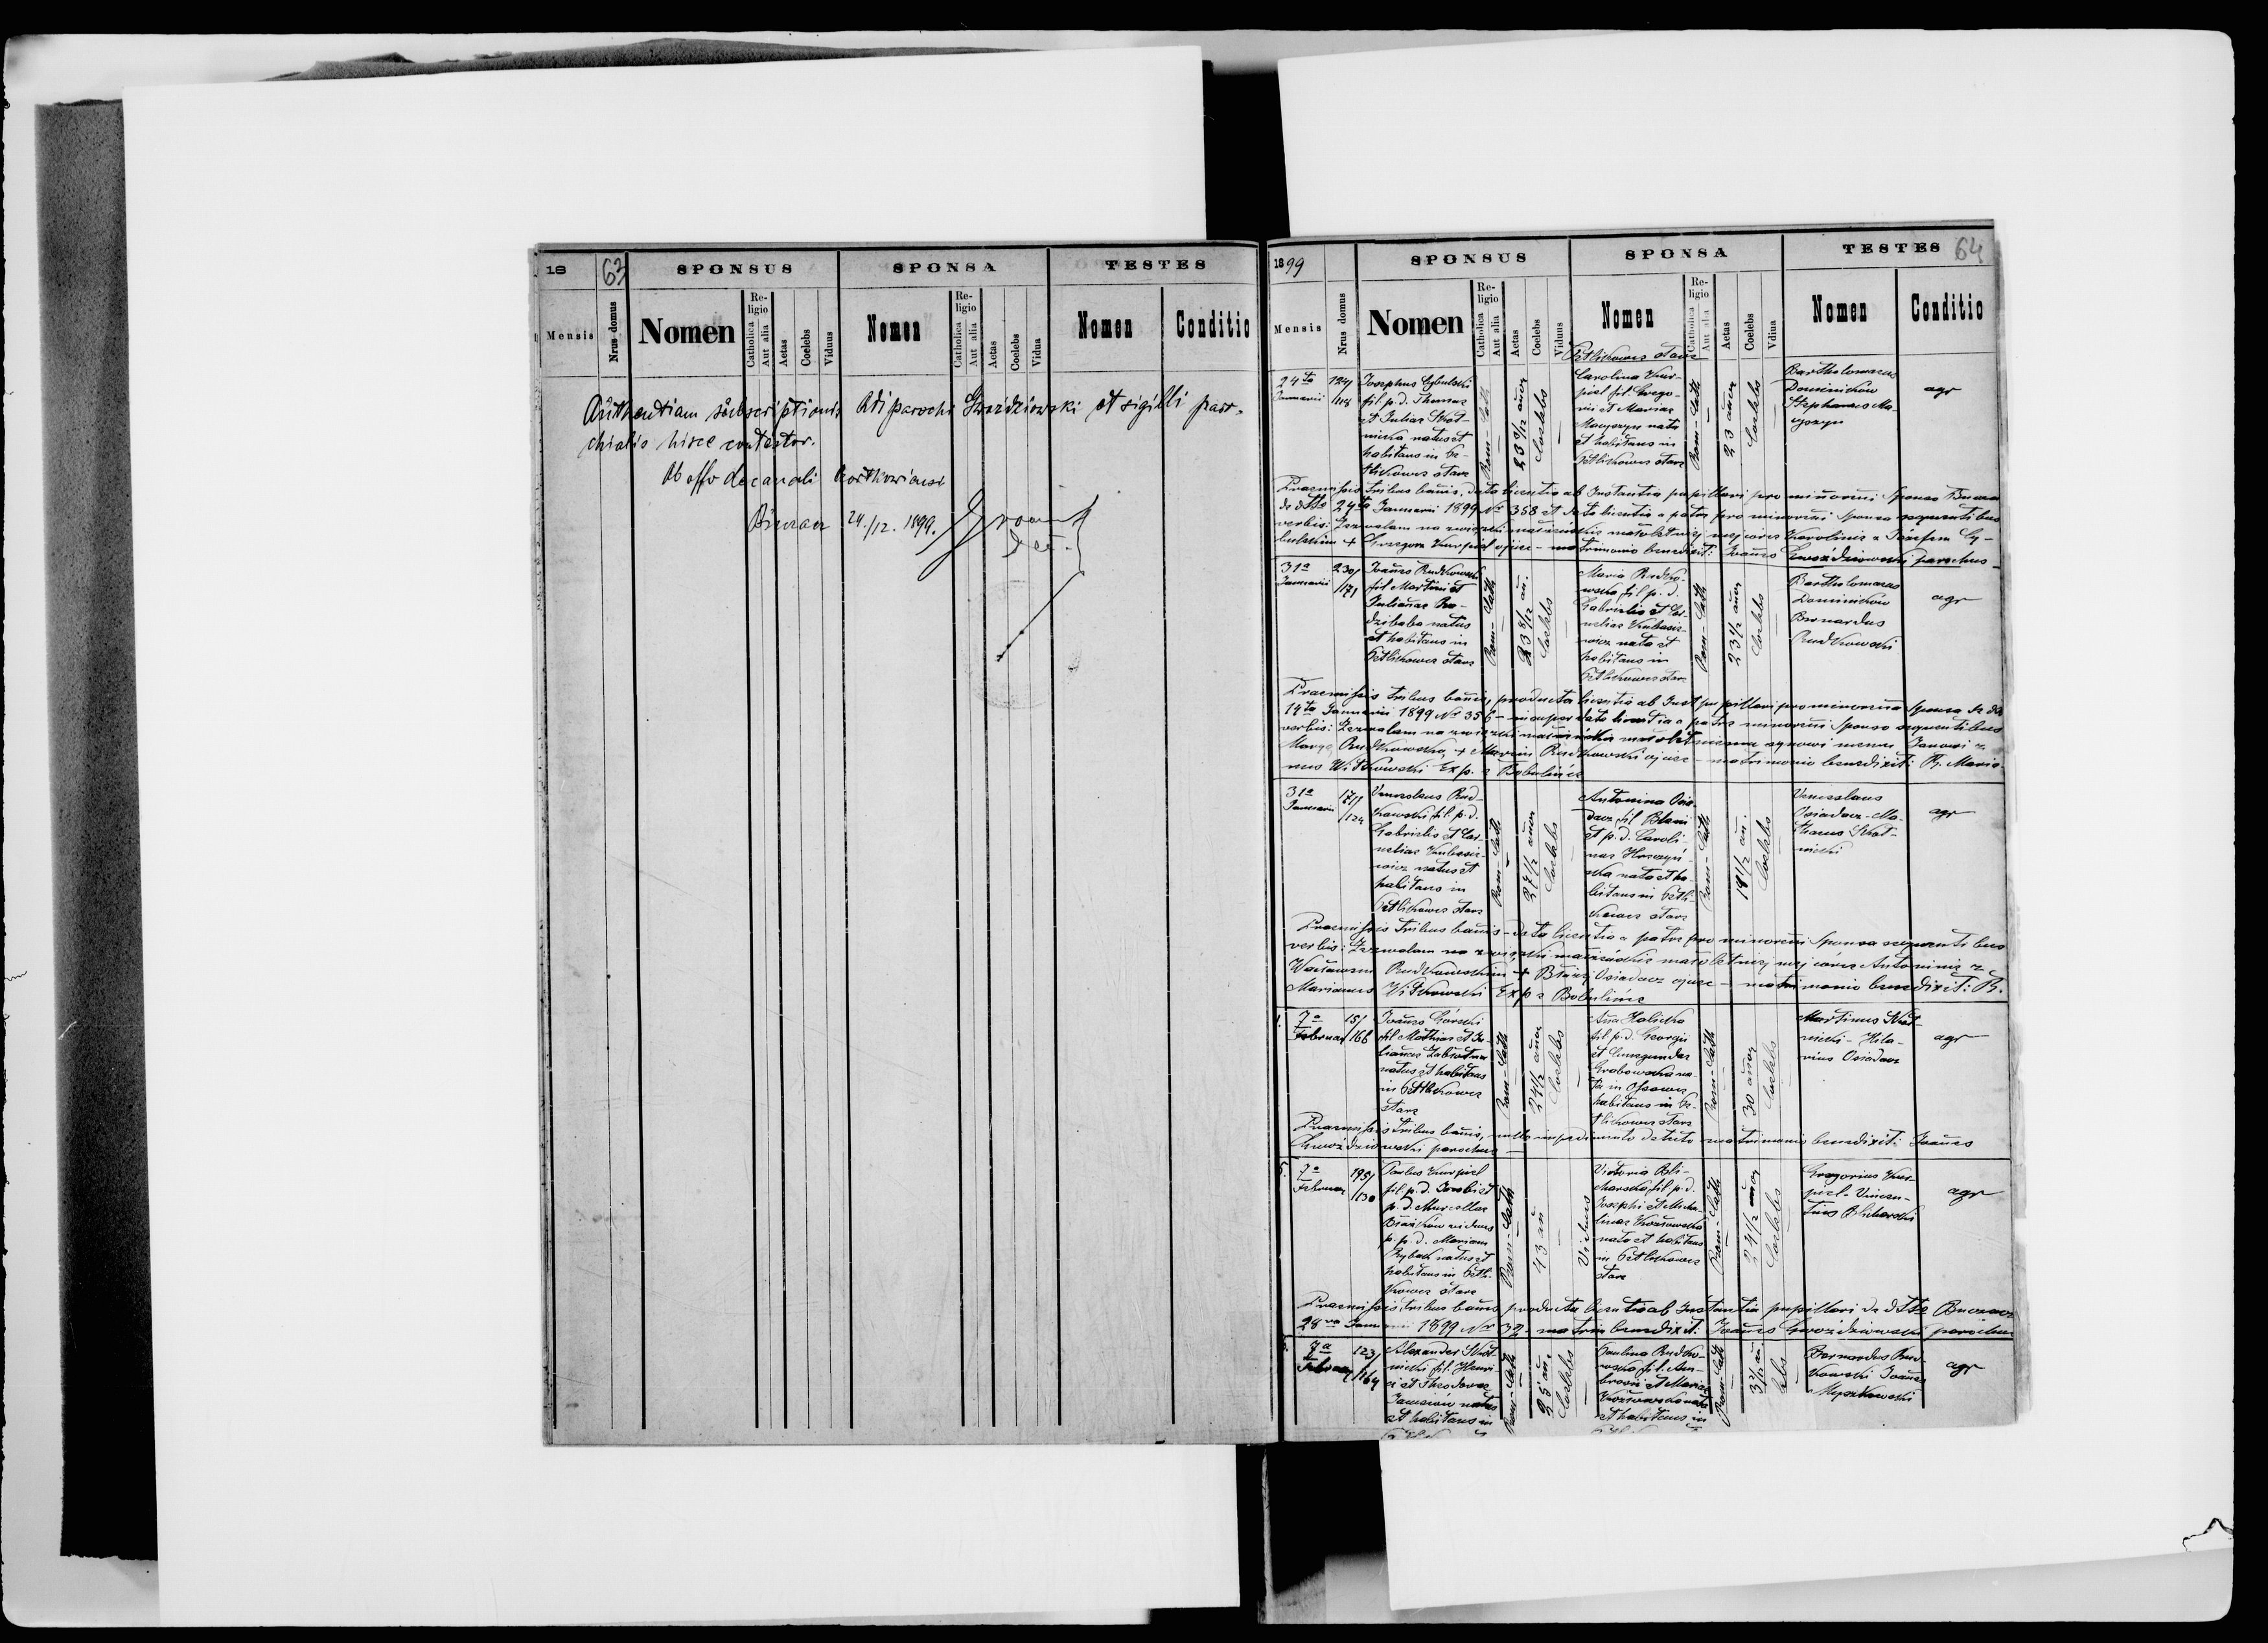 18 63 SPONSUS SPONSA TESTES
Mensis Nrus domus Nomen Religio Catholica Aut alia Aetas Coelebs Viduus Nomen Religio Catholica Aut alia Aetas Coelebs Vidua Nomen Conditio
Authentiam subscriptionis Adi parochi Gwoździowski et sigilli paro-
chialis hisce contestor.
Ab offo decanali
Buczacz 24./12. 1899. Gromnicki
1899 SPONSUS SPONSA TESTES 64
Mensis Nrus domus Nomen Religio Catholica Aut alia Aetas Coelebs Viduus Nomen Religio Catholica Aut alia Aetas Coelebs Vdiua Nomen Conditio
Petlikowce stare
24ta
Januarii
124/
118
Josephus Cybulski
fil p. d. Thomae
et Juliae Skot-
nicka natus et
habitans in Pe-
tlikowce stare
Rom-Cath
23 9/12 anor
Coelebs
Carolina Kur-
piel fil. Grego-
rii et Mariae
Magszyn nata
et habitans in
Petlikowce stare
Rom-Cath
23 anor
Coelebs
Bartholomaeus
Dominików
Stephanus Ma-
gszyn
agr
Praemissis tribus banis, data licentia ab Instantia pupillari pro minoreni Sponso Buczacz
de dtto 24ta Januarii 1899 No 358 et data licentia a patre pro minoreni sponsa sequentibus
verbis: Zezwalam na związki małżeńskie małoletniej mej córce Karolinie z Józefem Cy-
bulskim + Grzegorz Kurpiel ojciec - matrimonio benedixit: Joanes Gwoździowski parochus
31a
Januarii
230/
171
Joanes Rudkowski
fil Martini et
Julianae Ba-
dzibaba natus
et habitans in
Petlikowce stare
Rom-Cath
23 8/12 an.
Coelebs
Maria Rudko-
wska fil p. d.
Gabrielis et Cor-
neliae Kubasie-
wicz nata et
habitans in
Petlikowce stare
Rom-Cath
23 1/2 anor
Coelebs
Bartholomaeus
Dominików
Bernardus
Rudkowski
agr
Praemissis tribus banis, producta licentia ab Inst pupillari pro minorena Sponsa de dto
14ta Januarii 1899 No 356 - nec data licentia a patre minoreni Sponso sequentibus
verbis: Zezwalam na związki małżeńskie małoletniemu synowi memu Janowi z
Maryą Rudkowską + Marcin Rudkowski ojciec - matrimonio benedixit: R. Maria-
nus Witkowski Exp. z Bobuliniec
31a
Januarii
171/
124
Venceslaus Rud-
kowski fil. p. d.
Gabrielis et Cor-
neliae Kubasie-
wicz natus et
habitans in
Petlikowce stare
Rom-Cath
27 1/2 anor
Coelebs
Antonina Osia-
dacz fil Blasii
et p. d. Caroli-
nae Hreczyń-
ska nata et ha-
bitans in Petli-
kowce stare
Rom-Cath
18 1/2 an.
Coelebs
Venceslaus
Osiadacz - Ma-
thaeus Skot-
nicki
agr
Praemissis tribus banis - data licentia a patre pro minoreni Sponsa sequentibus
verbis: Zezwalam na związki małżeńskie małoletniej mej córce Antoninie z
Wacławem Rudkowskim + Błażej Osiadacz ojciec - matrimonio benedixit: R.
Marianus Witkowski Exp z Bobuliniec
7a
Februar
15/
166
Joanes Górski
fil Mathiae et Ju-
lianae
natus et habitans
in Petlikowce
stare
Rom-Cath
24 1/2 anor
Coelebs
Ana Halicka
fil p. d. Georgii
et Cunegundae
Grabowska na-
ta in Ossowce
habitans in Pe-
tlikowce stare
Rom-Cath
30 anor
Coelebs
Martinus Skot-
nicki - Hila-
rius Osiadacz
agr
Praemissis tribus banis, nullo impedimento detecto matrimonio benedixit: Joanes
Gwoździowski parochus
7a
Februar
195/
130
Paulus Kurpiel
fil. p. d. Jacobi et
p. d. Marcellae
Błażków viduus
p. p. d. Mariam
Rybak natus et
habitans in Petli-
kowce stare
Rom-Cath
43 an
Viduus
Victoria Bli-
charska fil p. d.
Josephi et Micha-
linae Krosowska
nata et habitans
in Petlikowce
stare
Rom-Cath
24 1/2 anor
Coelebs
Gregorius Kur-
piel - Vincen-
tius Blicharski
agr
Praemissis tribus banis producta licentia ab Instantia pupillari de dtto Buczacz
28va Januarii 1899 No 32 - matrim benedixit: Joanes Gwoździowski parochus
7a
Februar
123/
164
Alexander Skot-
nicki fil. Henri-
ci et Theodorae
natus
et habitans in
Rom-Cath
25 an.
Coelebs
Paulina Rudko-
wska fil. Am-
brosii et Mariae
Krosowska nata
et habitans in
Rom-Cath
Bernardus Rud-
kowski Joanes
Myszkowski
agr